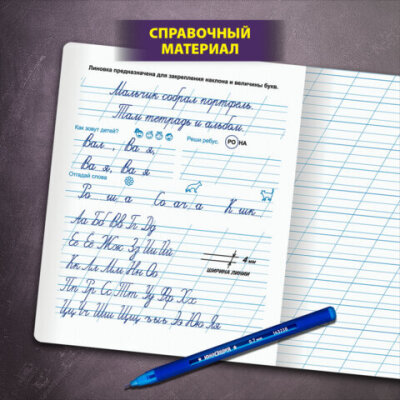 СПРАВОЧНЫЙ
МАТЕРИАЛ
Линовка предназначена для закрепления наклона и величины букв.
Мальчик собрал портфель.
Там тетрадь и альбом.
Как зовут детей?
Реши ребус. РО НА
Вал . , Ва я,
Ва я, Ва я
Отгадай слова
Ро ш а Со а г а К шк
Аа Бб Вв Гг Дд
Ее Ёё Жж Зз Ии Йй
Кк Лл Мм Нн Оо
Пп Рр Сс Тт Уу Фф Хх
Цц Чч Шш Щщ ъ ы ь Ээ Юю Яя
4 мм
ШИРИНА ЛИНИИ
ЮНЛАНДИЯ 0,7 мм